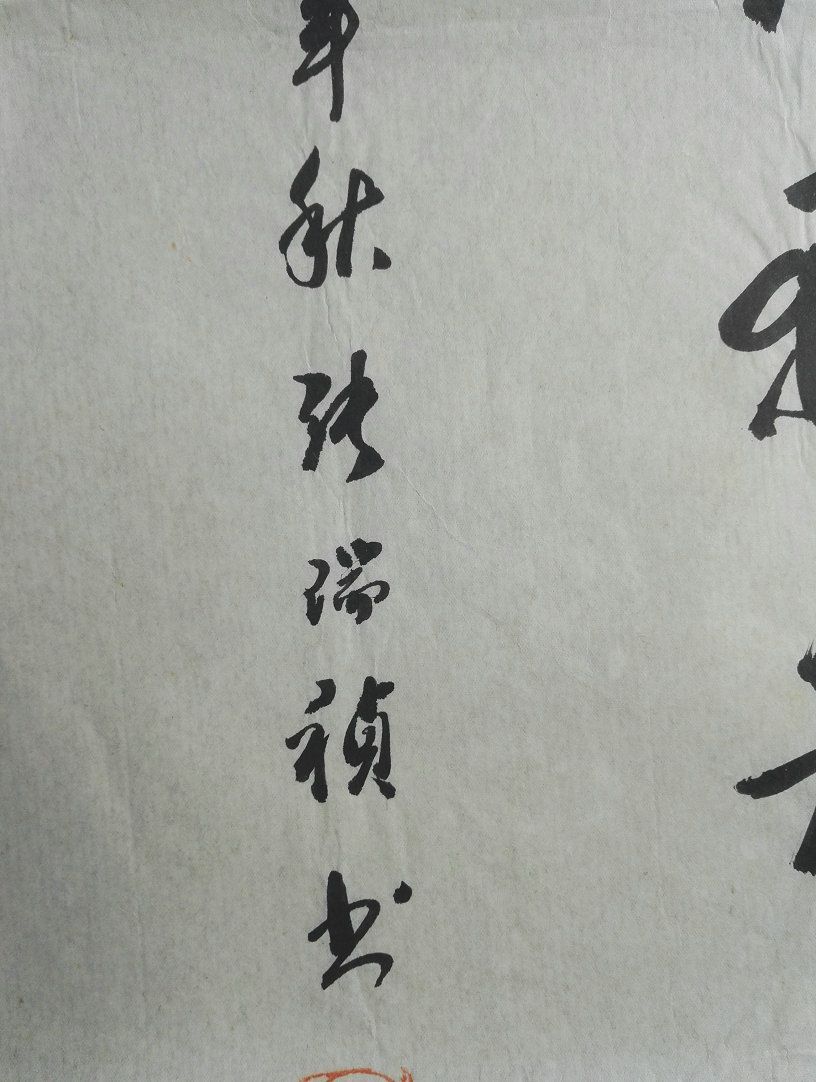 年秋张瑞祯书